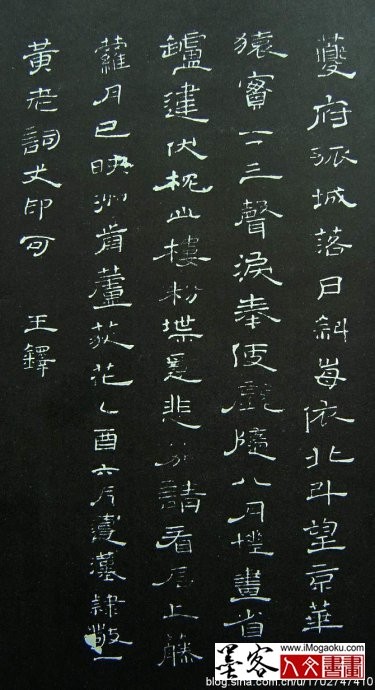 夔府孤城落日斜每依北斗望京華
猿實下三聲淚奉使虛隨八月槎畫省
鑪違伏枕山樓粉堞隱悲笳請看石上藤
蘿月已映洲前蘆荻花乙酉六月夔漢隸
黃老詞丈印可 王鐸
墨客
人文書畫
www.iMogaoku.com
blog.sina.com.cn/u/1702747410